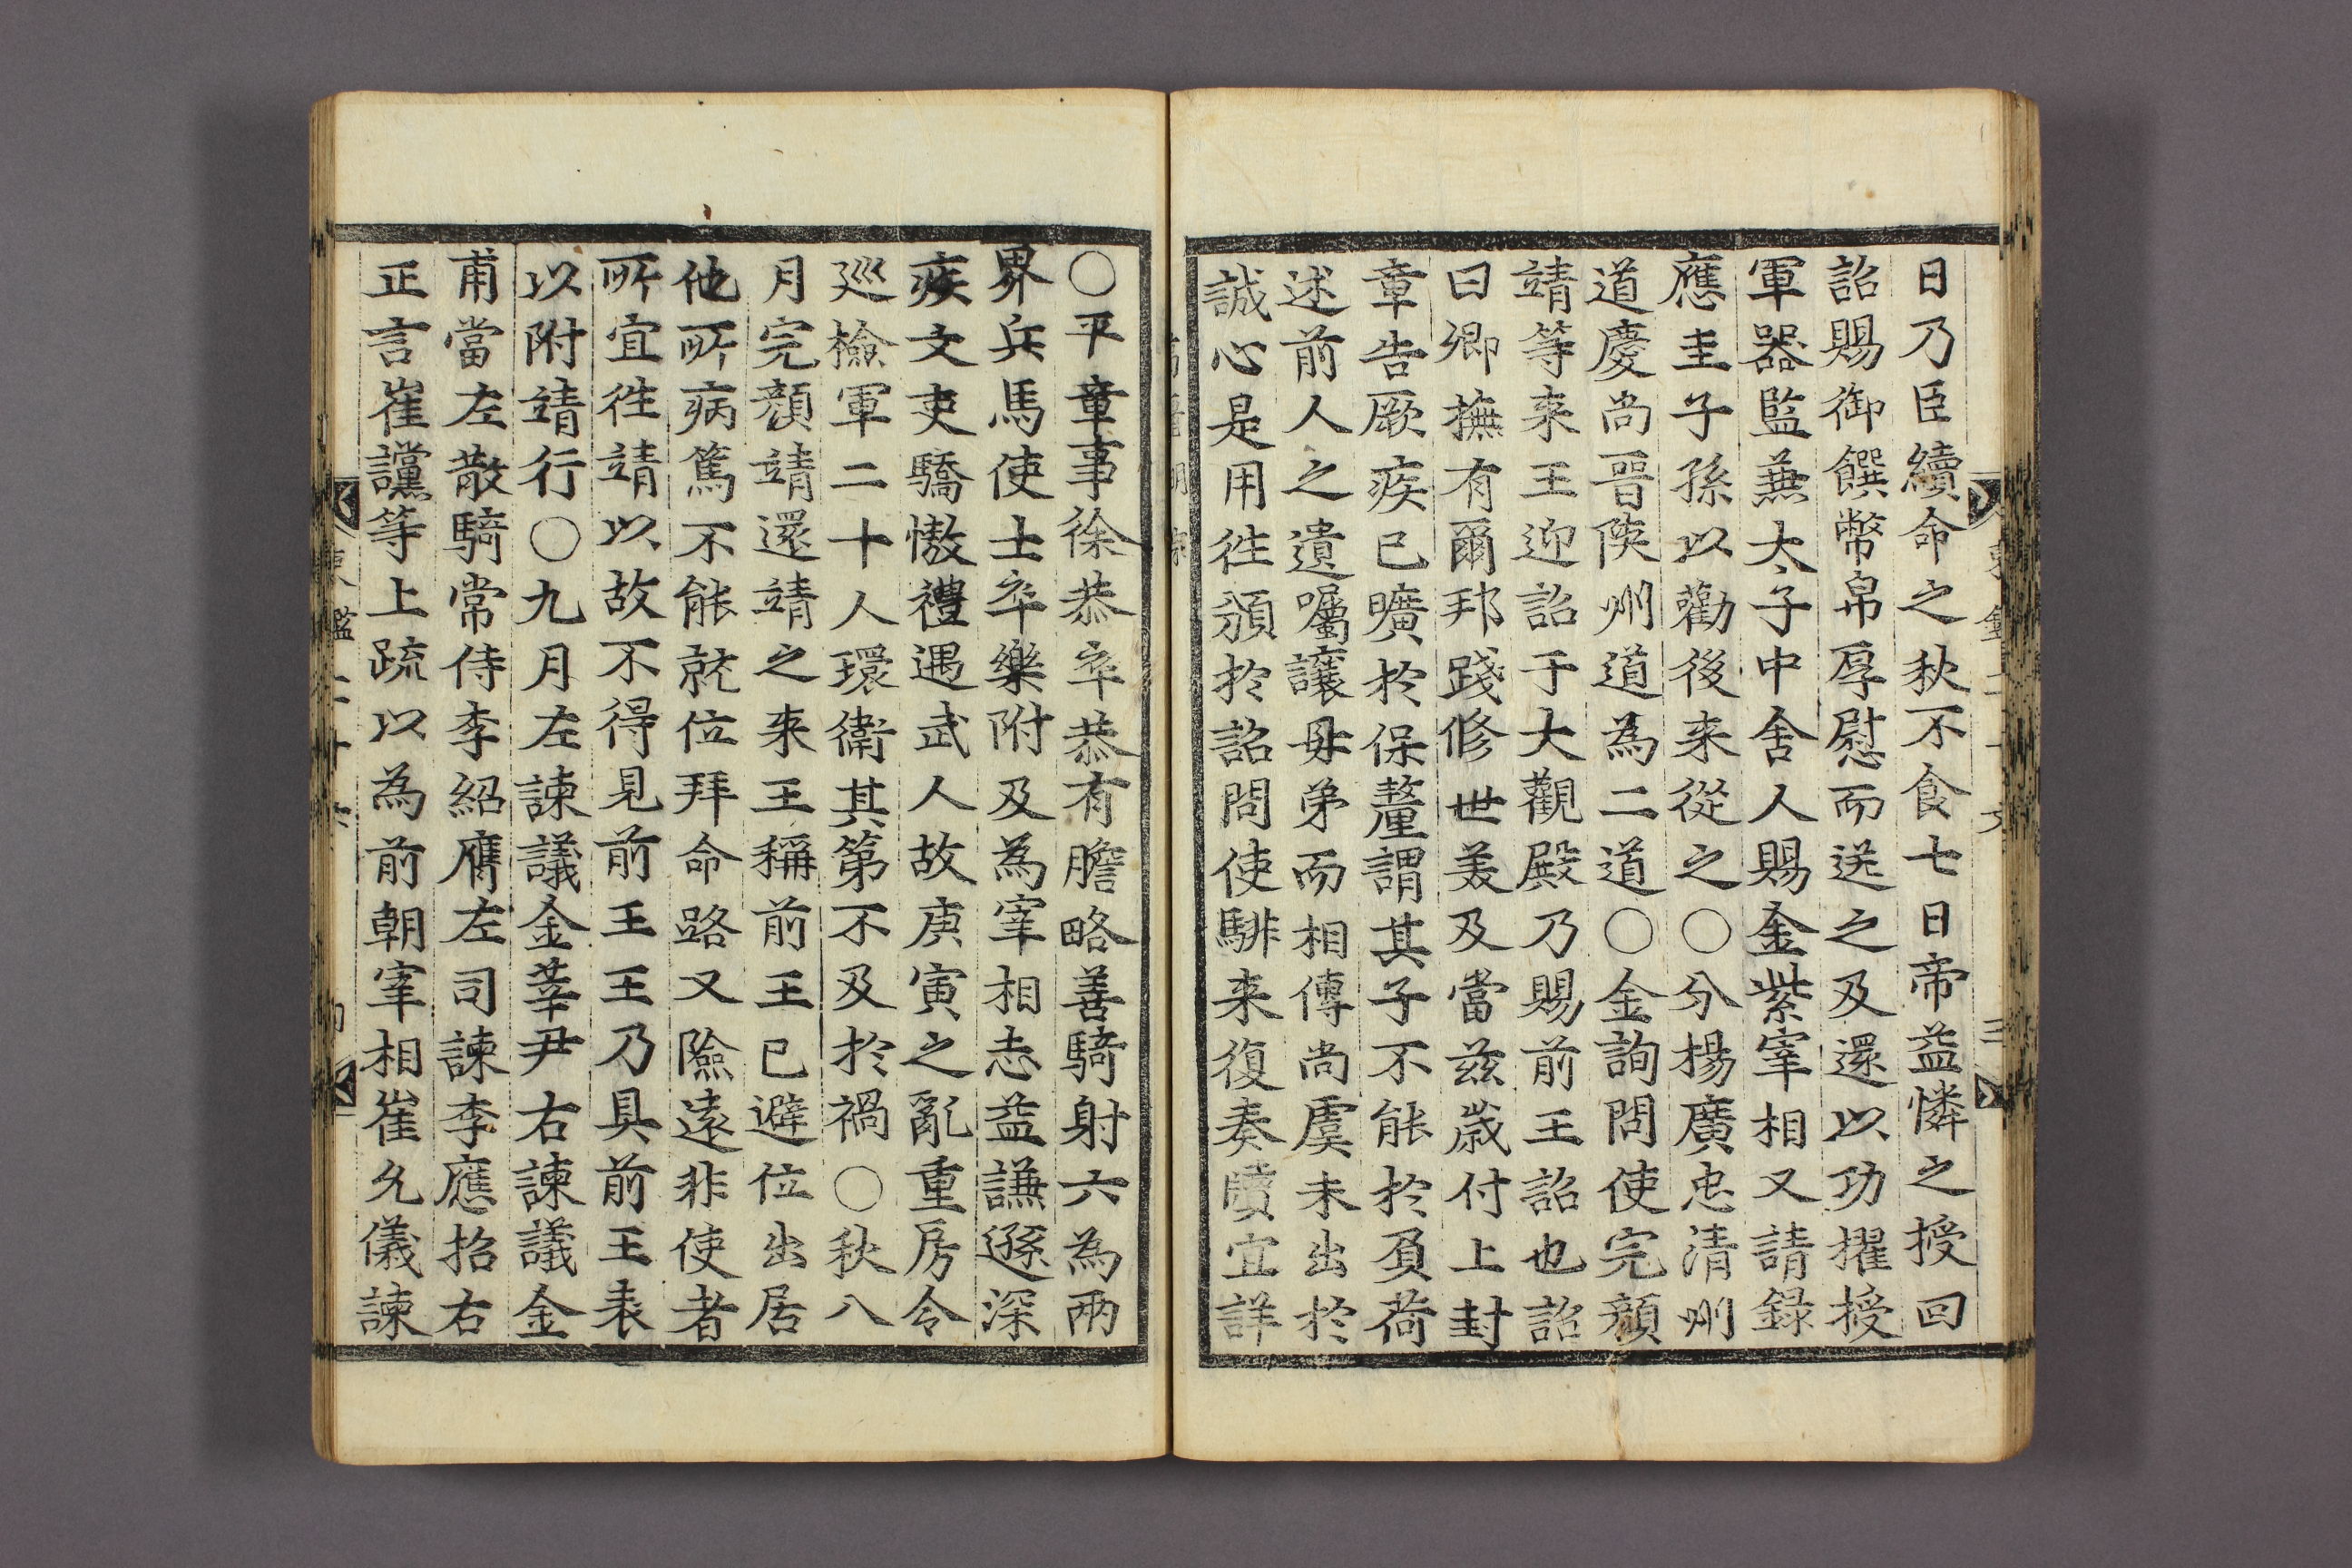 日乃臣續命之秋不食七日帝益憐之授回
詔賜御饌幣帛厚慰而送之及還以功擢授
軍器監兼太子中舍人賜金紫宰相又請録
應圭子孫以勸後来從之〇分楊廣忠清州
道慶尚晉陜州道為二道〇金詢問使完顔
靖等来王迎詔于大觀殿乃賜前王詔也詔
曰卿撫有爾邦踐修世美及當兹歲付上封
章告厥疾已曠於保釐謂其子不能於負荷
述前人之遺囑讓毋弟而相傳尚虞未出於
誠心是用徃頒於詔問使騑来復奏牘宜詳
〇平章事徐恭卒恭有膽略善騎射六為兩
界兵馬使士卒樂附及為宰相志益謙遜深
疾文吏驕慠禮遇武人故庚寅之亂重房令
巡檢軍二十人環衛其第不及於禍〇秋八
月完顔靖還靖之来王稱前王已避位出居
他所病篤不能就位拜命路又險遠非使者
所宜徃靖以故不得見前王王乃具前王表
以附靖行〇九月左諫議金莘尹右諫議金
甫當左散騎常侍李紹膺左司諫李應招右
正言崔讜等上疏以為前朝宰相崔允儀諫